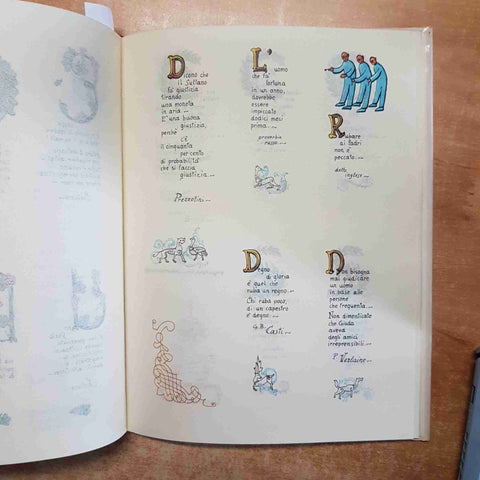 Dicono che
il Sultano
fa giustizia
tirando
una moneta
in aria...
E' una buona
giustizia,
perché
c'è
il cinquanta
per cento
di probabilità
che si faccia
giustizia...
Prezzolini...
L'uomo
che fa'
fortuna
in un anno,
dovrebbe
essere
impiccato
dodici mesi
prima...
proverbio
russo...
Rubare
ai ladri
non è
peccato...
detto
inglese...
Degno
di gloria
è quel che
ruba un regno...
Chi ruba poco,
di un capestro
è degno...
G.B.
Casti...
Non bisogna
mai giudicare
un uomo
in base alle
persone
che frequenta...
Non dimenticate
che Giuda
aveva
degli amici
irreprensibili...
P. Verlaine...